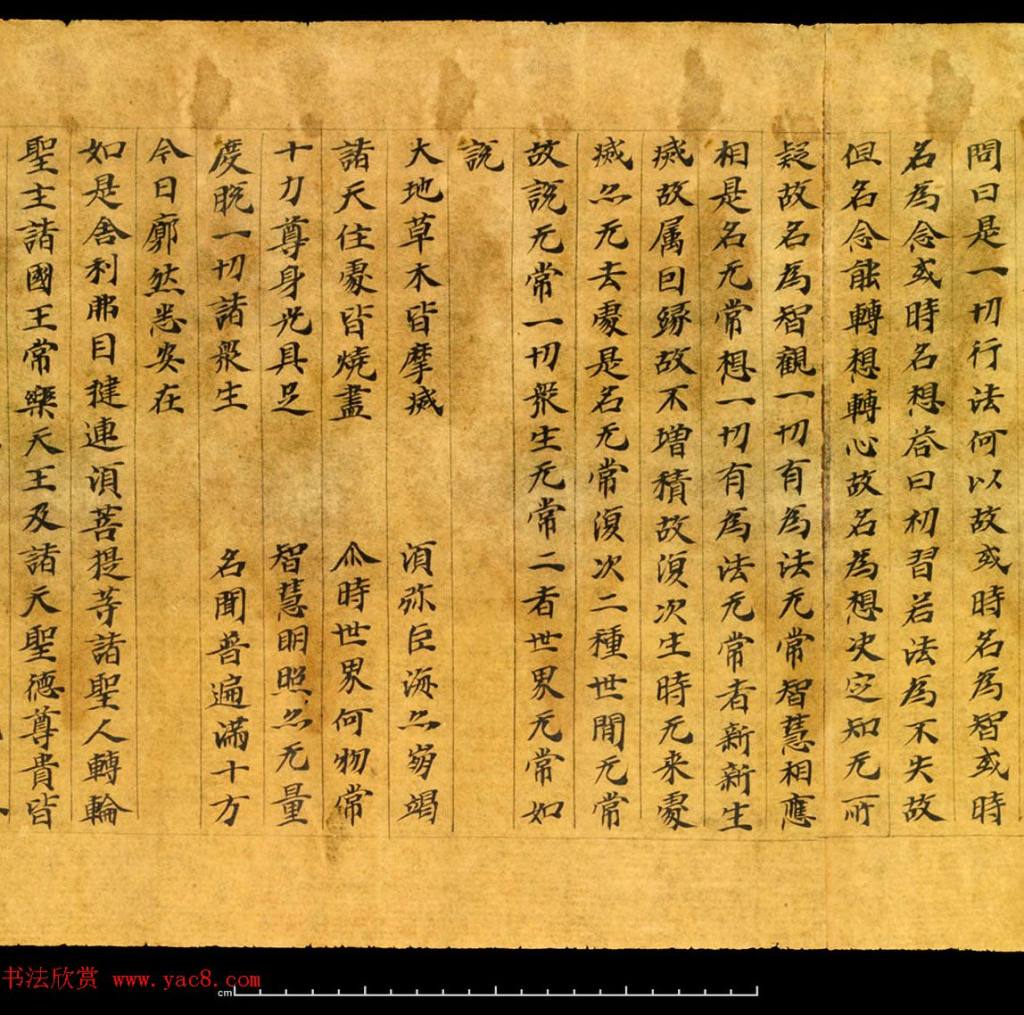 問曰是一切行法何以故或時名為智或時
名為念或時名想荅曰初習若法為不失故
但名念能轉想轉心故名為想决定知无所
疑故名為智觀一切有為法无常智慧相應
相是名无常想一切有為法无常者新新生
滅故属因緣故不增積故復次生時无来處
滅亦无去處是名无常復次二種世間无常
故說无常一切衆生无常二者世界无常如
說
大地草木皆摩滅 須弥巨海亦崩竭
諸天住處皆燒盡 尒時世界何物常
十力尊身光具足 智慧明照亦无量
度脫一切諸衆生 名聞普遍滿十方
今日廓然悉安在
如是舍利弗目揵連須菩提等諸聖人轉輪
聖主諸國王常樂天王及諸天聖德尊貴皆
书法欣赏 www.yac8.com
cm